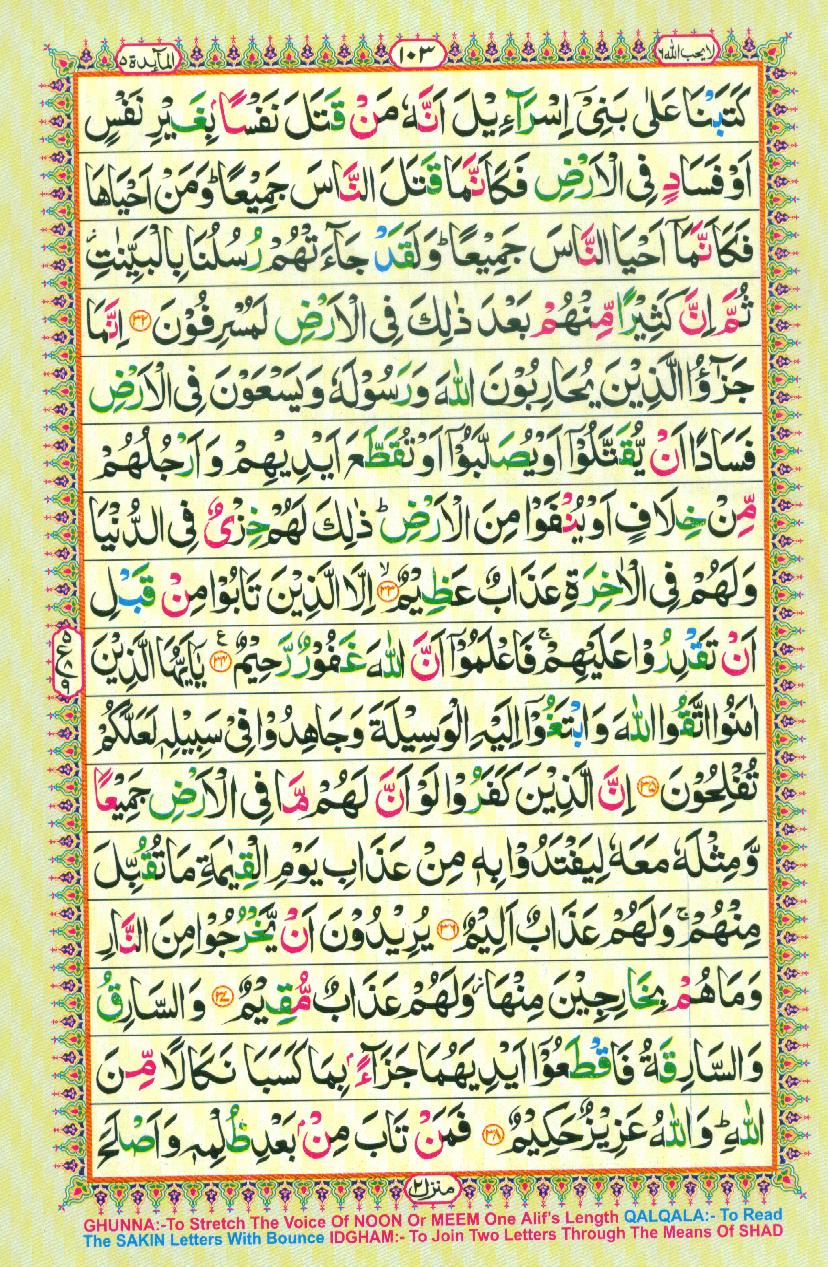 لا يحب الله ٦
١٠٣
المآئدة ٥
كَتَبْنَا عَلٰى بَنِیْۤ اِسْرَآءِیْلَ اَنَّهٗ مَنْ قَتَلَ نَفْسًۢا بِغَیْرِ نَفْسٍ
اَوْ فَسَادٍ فِی الْاَرْضِ فَكَاَنَّمَا قَتَلَ النَّاسَ جَمِیْعًا ؕ وَمَنْ اَحْیَاهَا
فَكَاَنَّمَاۤ اَحْیَا النَّاسَ جَمِیْعًا ؕ وَلَقَدْ جَآءَتْهُمْ رُسُلُنَا بِالْبَیِّنٰتِ ؗ
ثُمَّ اِنَّ كَثِیْرًا مِّنْهُمْ بَعْدَ ذٰلِكَ فِی الْاَرْضِ لَمُسْرِفُوْنَ ﴿٣٢﴾ اِنَّمَا
جَزٰٓؤُا الَّذِیْنَ یُحَارِبُوْنَ اللّٰهَ وَرَسُوْلَهٗ وَیَسْعَوْنَ فِی الْاَرْضِ
فَسَادًا اَنْ یُّقَتَّلُوْۤا اَوْ یُصَلَّبُوْۤا اَوْ تُقَطَّعَ اَیْدِیْهِمْ وَاَرْجُلُهُمْ
مِّنْ خِلَافٍ اَوْ یُنْفَوْا مِنَ الْاَرْضِ ؕ ذٰلِكَ لَهُمْ خِزْیٌ فِی الدُّنْیَا
وَلَهُمْ فِی الْاٰخِرَةِ عَذَابٌ عَظِیْمٌ ﴿٣٣﴾ۙ اِلَّا الَّذِیْنَ تَابُوْا مِنْ قَبْلِ
اَنْ تَقْدِرُوْا عَلَیْهِمْ ۚ فَاعْلَمُوْۤا اَنَّ اللّٰهَ غَفُوْرٌ رَّحِیْمٌ ﴿٣٤﴾ ع یٰۤاَیُّهَا الَّذِیْنَ
٥
ع
٨
٩
اٰمَنُوا اتَّقُوا اللّٰهَ وَابْتَغُوْۤا اِلَیْهِ الْوَسِیْلَةَ وَجَاهِدُوْا فِیْ سَبِیْلِهٖ لَعَلَّكُمْ
تُفْلِحُوْنَ ﴿٣٥﴾ اِنَّ الَّذِیْنَ كَفَرُوْا لَوْ اَنَّ لَهُمْ مَّا فِی الْاَرْضِ جَمِیْعًا
وَّمِثْلَهٗ مَعَهٗ لِیَفْتَدُوْا بِهٖ مِنْ عَذَابِ یَوْمِ الْقِیٰمَةِ مَا تُقُبِّلَ
مِنْهُمْ ۚ وَلَهُمْ عَذَابٌ اَلِیْمٌ ﴿٣٦﴾ یُرِیْدُوْنَ اَنْ یَّخْرُجُوْا مِنَ النَّارِ
وَمَا هُمْ بِخَارِجِیْنَ مِنْهَا ؗ وَلَهُمْ عَذَابٌ مُّقِیْمٌ ﴿٣٧﴾ وَالسَّارِقُ
وَالسَّارِقَةُ فَاقْطَعُوْۤا اَیْدِیَهُمَا جَزَآءًۢ بِمَا كَسَبَا نَكَالًا مِّنَ
اللّٰهِ ؕ وَاللّٰهُ عَزِیْزٌ حَكِیْمٌ ﴿٣٨﴾ فَمَنْ تَابَ مِنْۢ بَعْدِ ظُلْمِهٖ وَاَصْلَحَ
منزل ٢
GHUNNA:-To Stretch The Voice Of NOON Or MEEM One Alif's Length QALQALA:- To Read
The SAKIN Letters With Bounce IDGHAM:- To Join Two Letters Through The Means Of SHAD